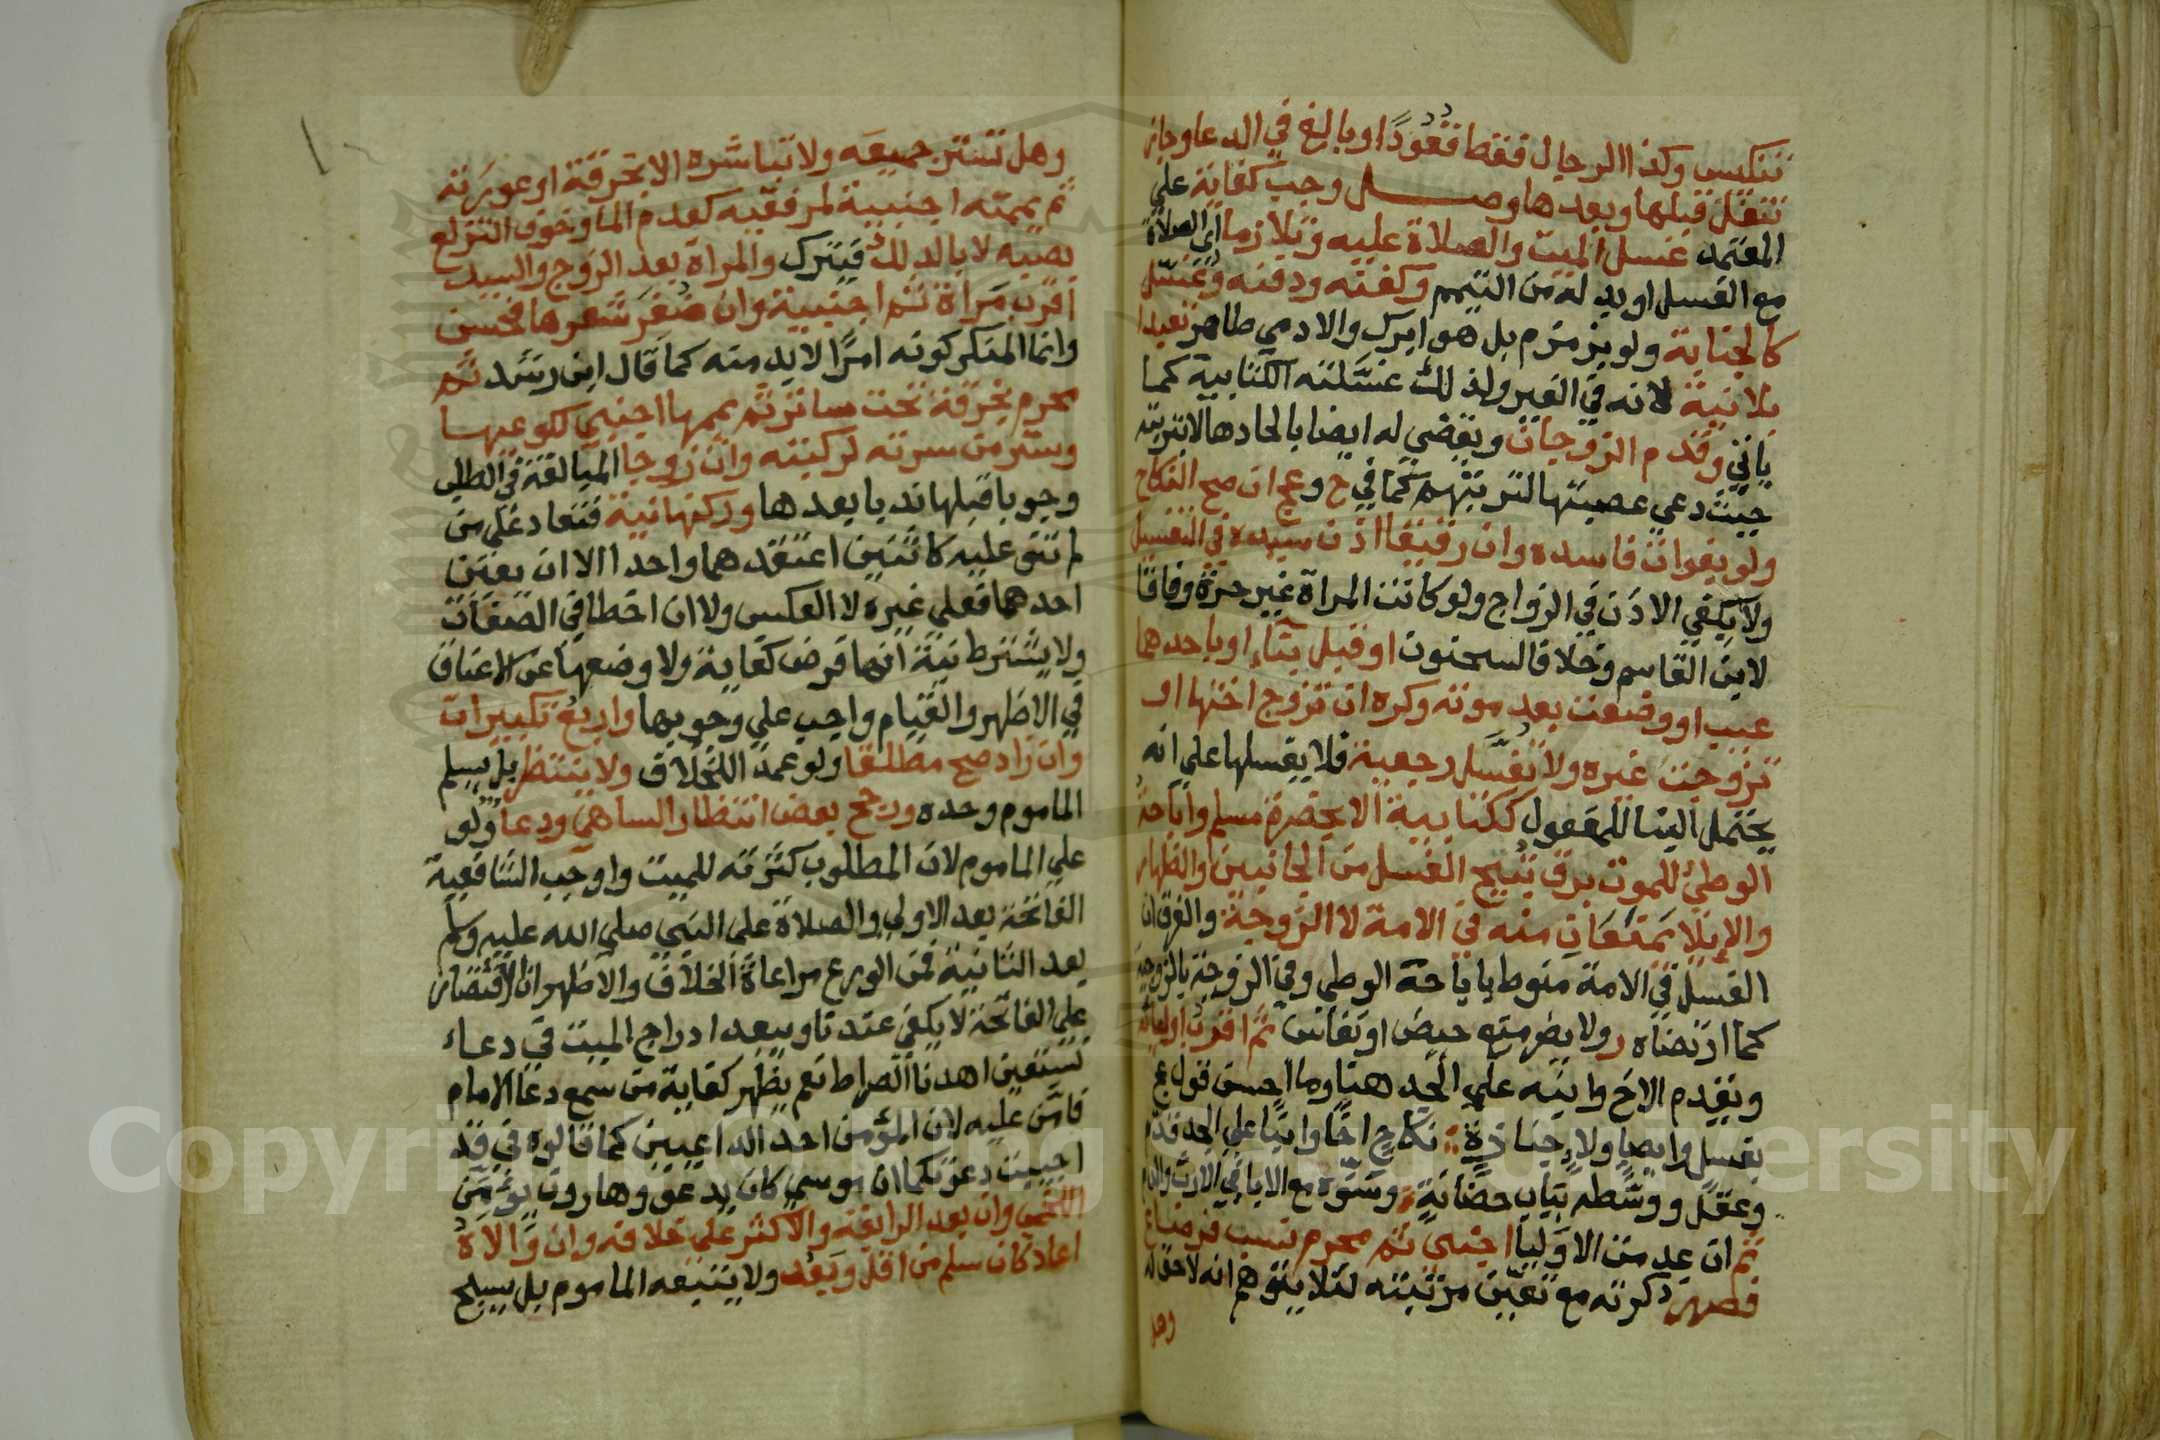 تنكيس وكذا الرجال فقط قعودا وبالغ في الدعا وجاز
تنفل قبلها وبعدها وصـل وجب كفاية علي
المعتمد غسل الميت والصلاة عليه وتلازما اي الصلاة
مع الغسل او بدله من التيمم وكفنه ودفنه وغسل
كالجنابة ولو بزمزم بل هو ابرك والادمي طاهر تعبدا
بلا نية لانه في الغير ولذلك غسلته الكتابية كما
ياتي وقدم الزوجان وبقضي له ايضا بالحادها لا بتربته
حيث دعي عصبتها لتربتهم كما في ح وعج ان صح النكاح
ولو بفوات فاسده وان رقيقا اذن سيده في الغسل
ولا يكفي الاذن في الزواج ولو كانت المراة غير حرة وفاقا
لابن القاسم وخلافا لسحنون او قبل بناء او باحدهما
عيب او وضعت بعد موته وكره ان تزوج اختها او
تزوجت غيره ولا تغسل رجعية فلا يغسلها علي انه
يحتمل البنا للمفعول ككتابية الا بحضرة مسلم واباحة
الوطئ للموت برق تبيح الغسل من الجانبين والظهار
والايلا يمنعان منه في الامة لا الزوجة والفرق ان
الغسل في الامة منوط باباحة الوطي وفي الزوجة بالزوجية
كما ارتضاه ر ولا يضر منه حيض او نفاس ثم اقرب اوليائه
ويقدم الاخ وابنه علي الجد هنا وما احسن قول عج
بغسل وايصا ولا جنازة نكاح اخا وابنا علي الجد قدم
وعقل ووسطه بباب حضانة وسوه مع الابا في الارث والدم
ثم ان عدم من الاوليا اجنبي ثم محرم نسب فرضاع
فصهر ذكرته مع تعين مرتبته لئلا يتوهم انه لا حق له
وهل
وهل تستر جميعه ولا تباشره الا بخرقة او عورته
ثم يممته اجنبية لمرفقيه كعدم الما وخوف التزلع
بصبه لا بالدلك فيترك والمراة بعد الزوج والسيد
اقرب مراة ثم اجنبية وان ضفر شعرها فحسن
وانما المنكر كونه امرا لا بد منه كما قال ابن رشد ثم
محرم بخرقة تحت ساتر ثم يممها اجنبي لكوعيها
وستر من سرته لركبته وان زوجا المبالغة في الطلب
وجوبا قبلها ندبا بعدها وركنها نية فتعاد علي من
لم تنو عليه كاثنين اعتقدهما واحدا الا ان يعين
احدهما فعلي غيره لا العكس ولا ان اخطا في الصفات
ولا يشترط نية انها فرض كفاية ولا وضعها عن الاعناق
في الاظهر والقيام واجب علي وجوبها واربع تكبيرات
وان زاد صح مطلقا ولو عمدا للخلاف ولا ينتظر بل يسلم
الماموم وحده ورجح بعض انتظار الساهي ودعا ولو
علي الماموم لان المطلوب كثرته للميت واوجب الشافعية
الفاتحة بعد الاولي والصلاة علي النبي صلي الله عليه وسلم
بعد الثانية فمن الورع مراعاة الخلاف والاظهر ان الاقتصار
علي الفاتحة لا يكفي عندنا وببعد ادراج الميت في دعاء
نستعين اهدنا الصراط نعم يظهر كفاية من سمع دعا الامام
فامن عليه لان المؤمن احد الداعيين كما قالوه في قد
اجيبت دعوتكما ان موسي كان يدعو وهارون يؤمن
اللخمي وان بعد الرابعة والاكثر علي خلافه وان والاه
اعاد كان سلم من اقل وبعد ولا يتبعه الماموم بل يسبح